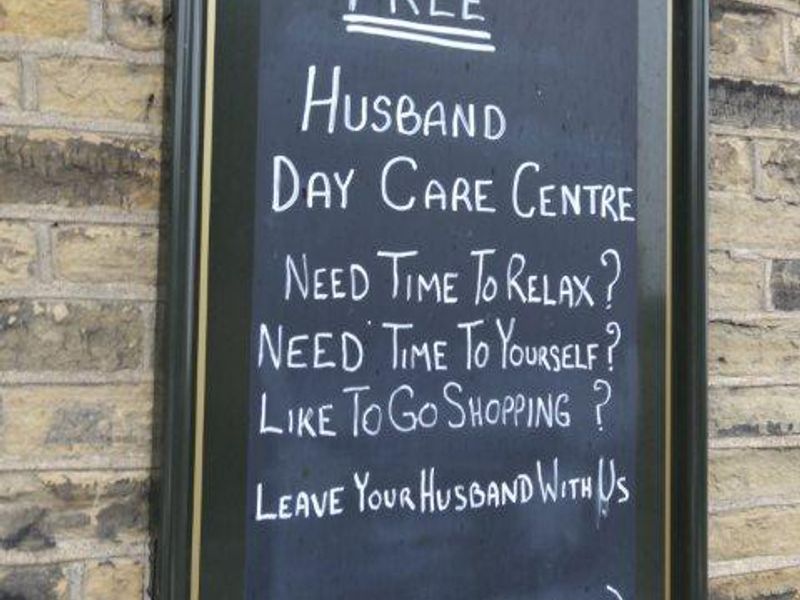 FREE
HUSBAND
DAY CARE CENTRE
NEED TIME TO RELAX?
NEED TIME TO YOURSELF?
LIKE TO GO SHOPPING?
LEAVE YOUR HUSBAND WITH US